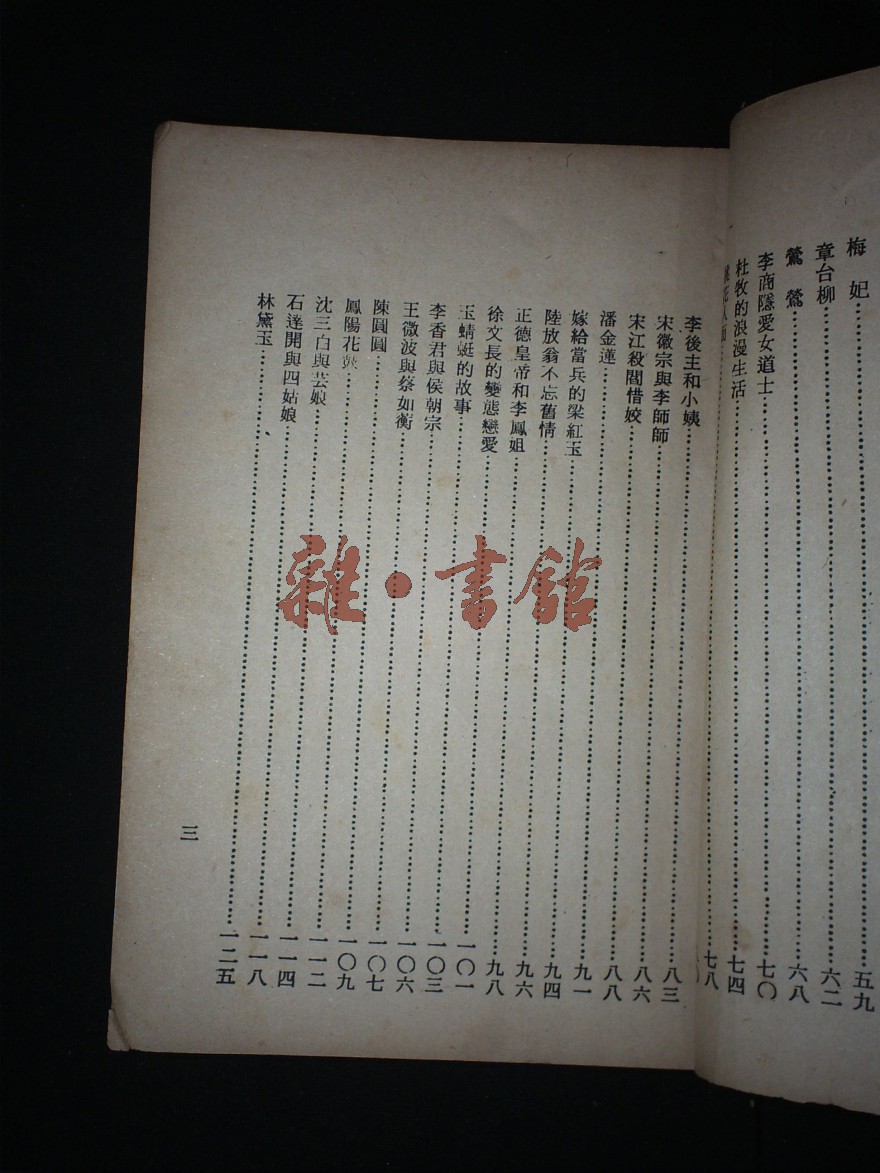 梅妃……五九
章台柳……六二
鶯鶯……六八
李商隱愛女道士……七〇
杜牧的浪漫生活……七四
花人面……七八
李後主和小姨……八三
宋徽宗與李師師……八六
宋江殺閻惜姣……八八
潘金蓮……九一
嫁給當兵的梁紅玉……九四
陸放翁不忘舊情……九六
正德皇帝和李鳳姐……九八
徐文長的變態戀愛……一〇一
玉蜻蜓的故事……一〇三
李香君與侯朝宗……一〇六
王微波與蔡如衡……一〇七
陳圓圓……一〇九
鳳陽花鼓……一一二
沈三白與芸娘……一一四
石達開與四姑娘……一一八
林黛玉……一二五
三
雜·書館